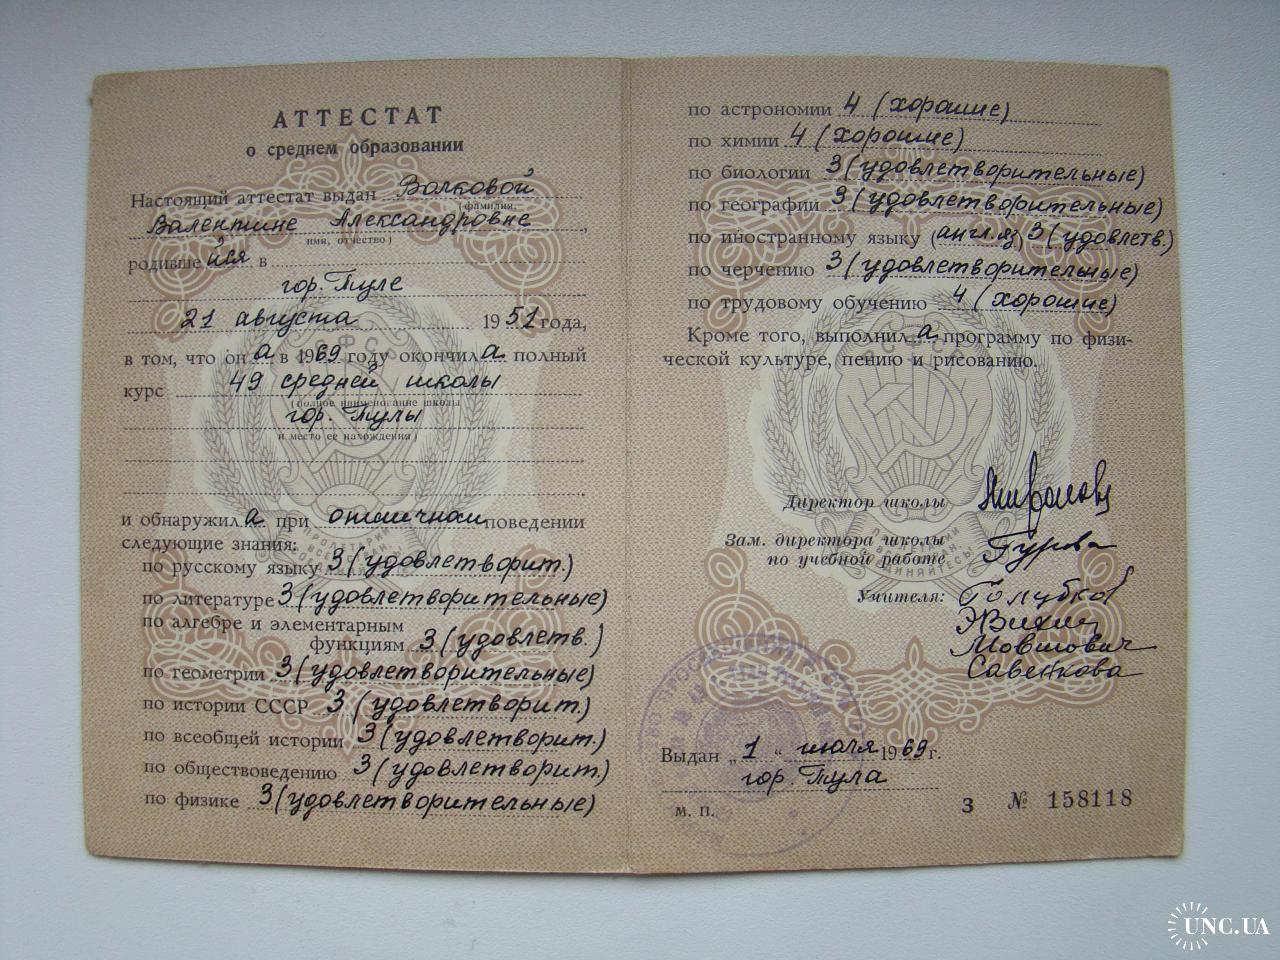 АТТЕСТАТ
о среднем образовании
Настоящий аттестат выдан Волковой
(фамилия,
Валентине Александровне,
имя, отчество)
родившейся в
гор. Туле
21 августа 1951 года,
в том, что она в 1969 году окончила полный
курс 49 средней школы
(полное наименование школы
гор. Тулы
и место ее нахождения)
и обнаружила при отличном поведении
следующие знания:
по русскому языку 3 (удовлетворит.)
по литературе 3 (удовлетворительные)
по алгебре и элементарным
функциям 3 (удовлетв.)
по геометрии 3 (удовлетворительные)
по истории СССР 3 (удовлетворит.)
по всеобщей истории 3 (удовлетворит.)
по обществоведению 3 (удовлетворит.)
по физике 3 (удовлетворительные)
по астрономии 4 (хорошие)
по химии 4 (хорошие)
по биологии 3 (удовлетворительные)
по географии 3 (удовлетворительные)
по иностранному языку (англ яз) 3 (удовлетв.)
по черчению 3 (удовлетворительные)
по трудовому обучению 4 (хорошие)
Кроме того, выполнила программу по физи-
ческой культуре, пению и рисованию.
Директор школы
Зам. директора школы
по учебной работе Гурова
Учителя: Голубков
Мовшович
Савенкова
Выдан „1" июля 1969 г.
гор. Тула
М. П.
З № 158118
UNC.UA